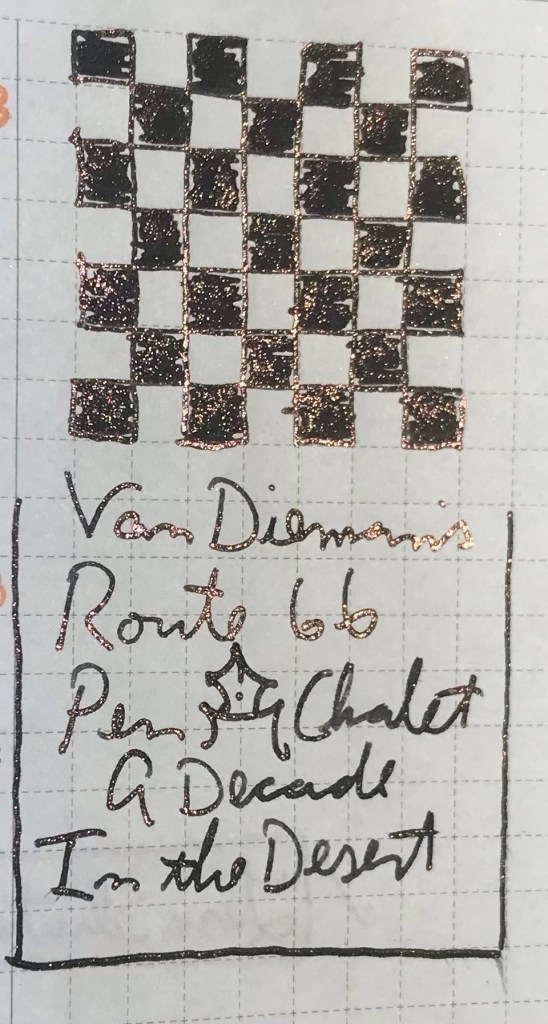 Van Dieman's
Route 66
Pen Chalet
A Decade
In the Desert